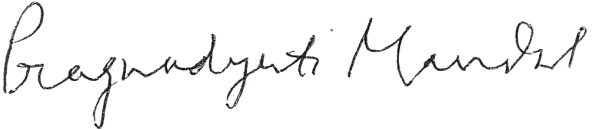 Pragnadyuti Mandal